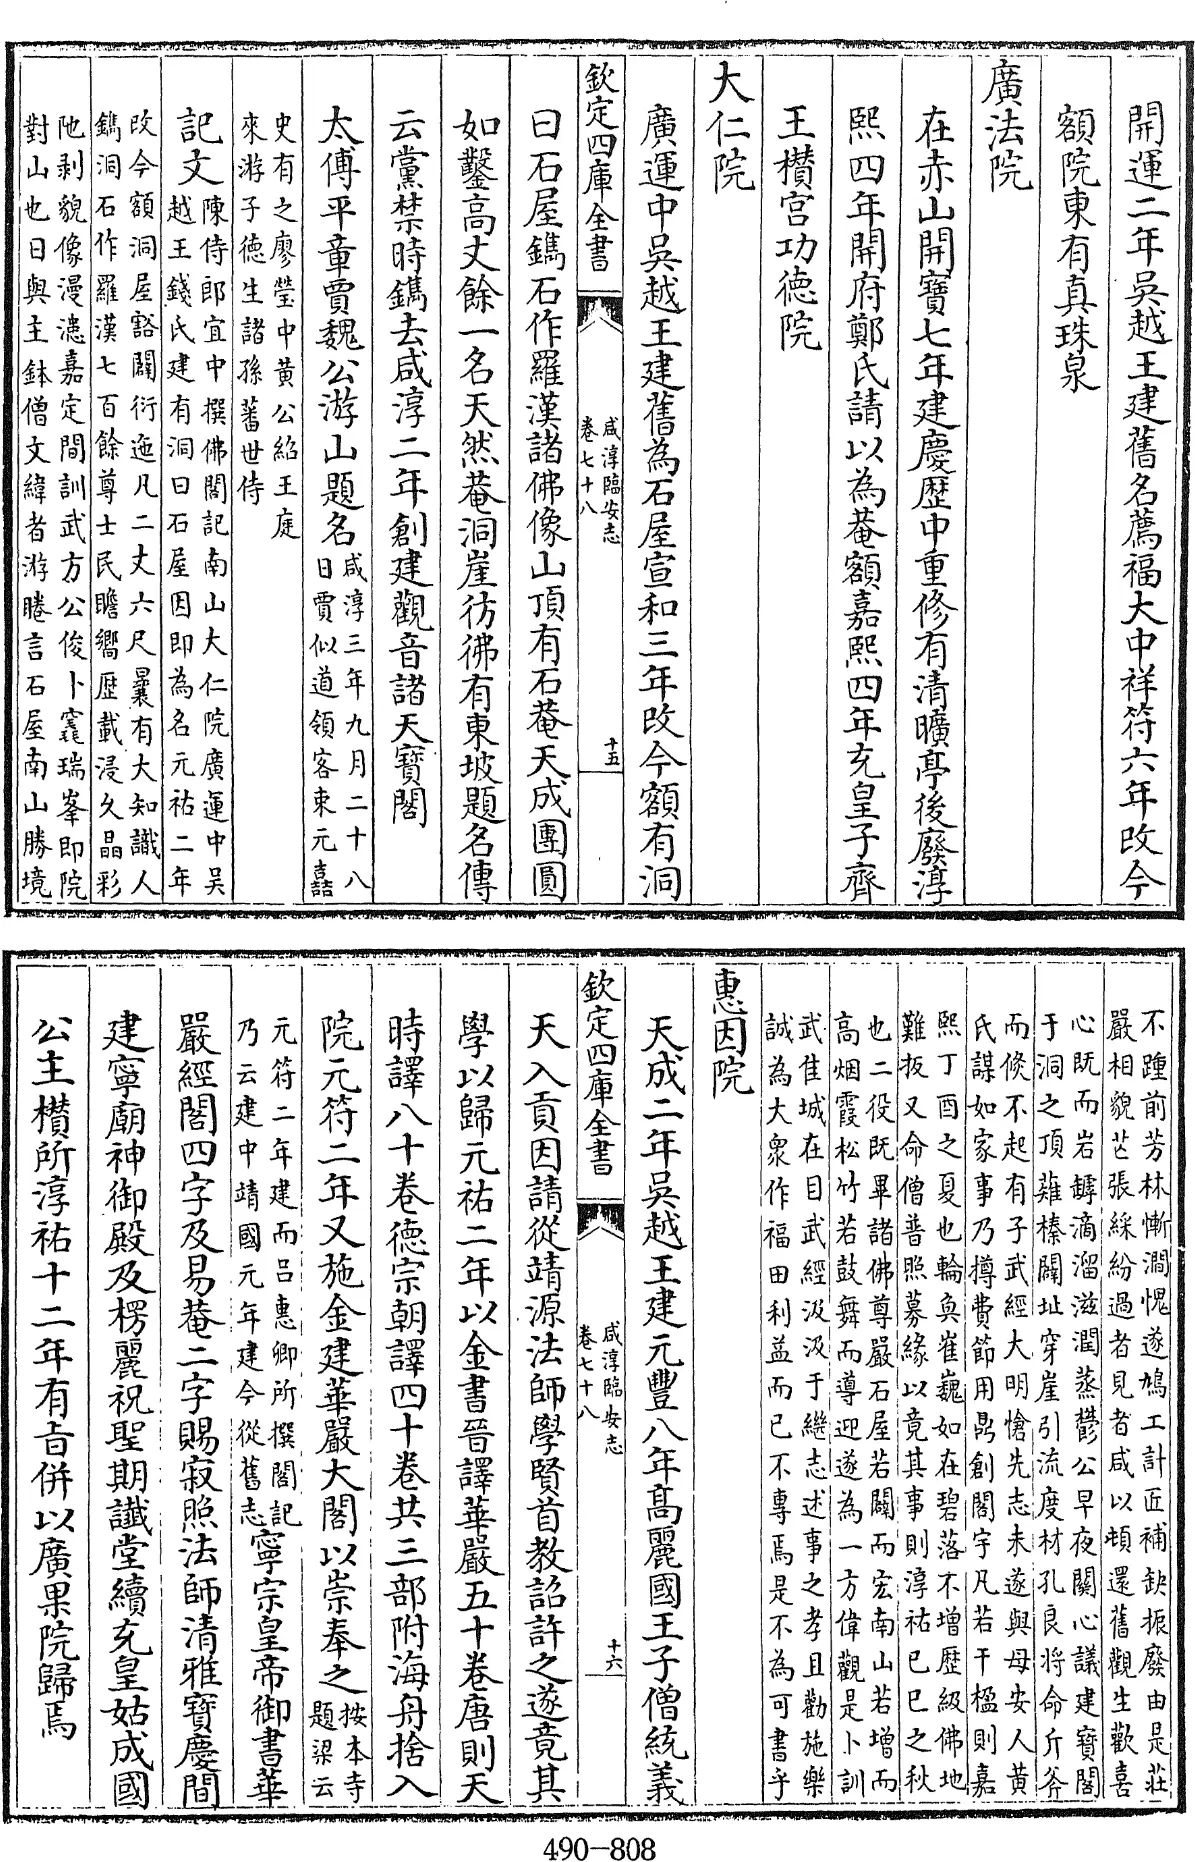 開運二年吳越王建舊名薦福大中祥符六年改今
額院東有真珠泉
廣法院
在赤山開寶七年建慶歴中重修有清曠亭後廢淳
熙四年開府鄭氏請以為菴額嘉熙四年充皇子齊
王欑宫功德院
大仁院
廣運中吳越王建舊為石屋宣和三年改今額有洞
欽定四庫全書
咸淳臨安志
卷七十八
十五
曰石屋鐫石作羅漢諸佛像山頂有石菴天成團圓
如鑿高丈餘一名天然菴洞崖彷彿有東坡題名傳
云黨禁時鐫去咸淳二年創建觀音諸天寶閣
太傅平章賈魏公游山題名
咸淳三年九月二十八
日賈似道領客東元嚞
史有之廖瑩中黃公紹王庭
來游子德生諸孫蕃世侍
記文
陳侍郎宜中撰佛閣記南山大仁院廣運中吳
越王錢氏建有洞曰石屋因即為名元祐二年
改今額洞屋豁闢衍迤凡二丈六尺曩有大知識人
鐫洞石作羅漢七百餘尊士民瞻嚮歴載浸久晶彩
阤剥貌像漫漶嘉定間訓武方公俊卜竁瑞峯即院
對山也日與主鉢僧文緯者游睠言石屋南山勝境
不踵前芳林慚澗愧遂鳩工計匠補缺振廢由是莊
嚴相貌芒張綵紛過者見者咸以頓還舊觀生歡喜
心既而岩罅滴溜滋潤蒸鬱公早夜關心議建寶閣
于洞之頂薙榛闢址穿崖引流度材孔良將命斤斧
而倏不起有子武經大明愴先志未遂與母安人黄
氏謀如家事乃撙費節用鼎創閣宇凡若干楹則嘉
熙丁酉之夏也輪奐崔巍如在碧落不增歴級佛地
難扳又命僧普照募緣以竟其事則淳祐己巳之秋
也二役既畢諸佛尊嚴石屋若闢而宏南山若增而
高烟霞松竹若鼓舞而導迎遂為一方偉觀是卜訓
武佳城在目武經汲汲于繼志述事之孝且勸施樂
誠為大衆作福田利益而已不專焉是不為可書乎
惠因院
天成二年吳越王建元豐八年高麗國王子僧統義
欽定四庫全書
咸淳臨安志
卷七十八
十六
天入貢因請從靖源法師學賢首教詔許之遂竟其
學以歸元祐二年以金書晉譯華嚴五十卷唐則天
時譯八十卷德宗朝譯四十卷共三部附海舟捨入
院元符二年又施金建華嚴大閣以崇奉之
按本寺
題梁云
元符二年建而吕惠卿所撰閣記
乃云建中靖國元年建今從舊志
寧宗皇帝御書華
嚴經閣四字及易菴二字賜寂照法師清雅寶慶間
建寧廟神御殿及楞麗祝聖期讖堂續充皇姑成國
公主欑所淳祐十二年有旨併以廣果院歸焉
490-808